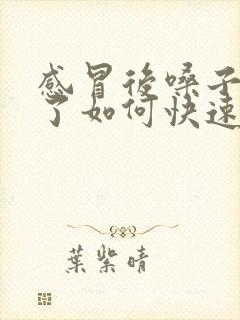 感冒後嗓子
了如何快速
葉紫晴